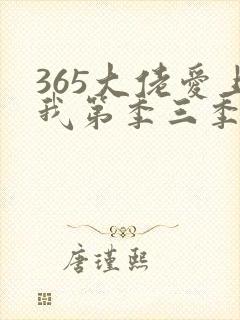 365大佬爱上
我第季三季
唐瑾熙